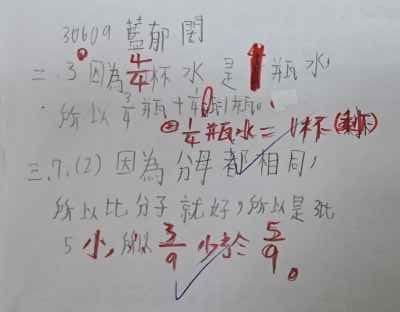 30609 藍郁閔
二.3 因為 4/4 杯水是 1 瓶水,
所以 3/4 瓶 + 1/4 瓶
1/4 瓶水 = 1杯(剩下)
三.7.(2) 因為分母都相同,
所以比分子就好,所以是3比
5小,所以 3/9 小於 5/9。